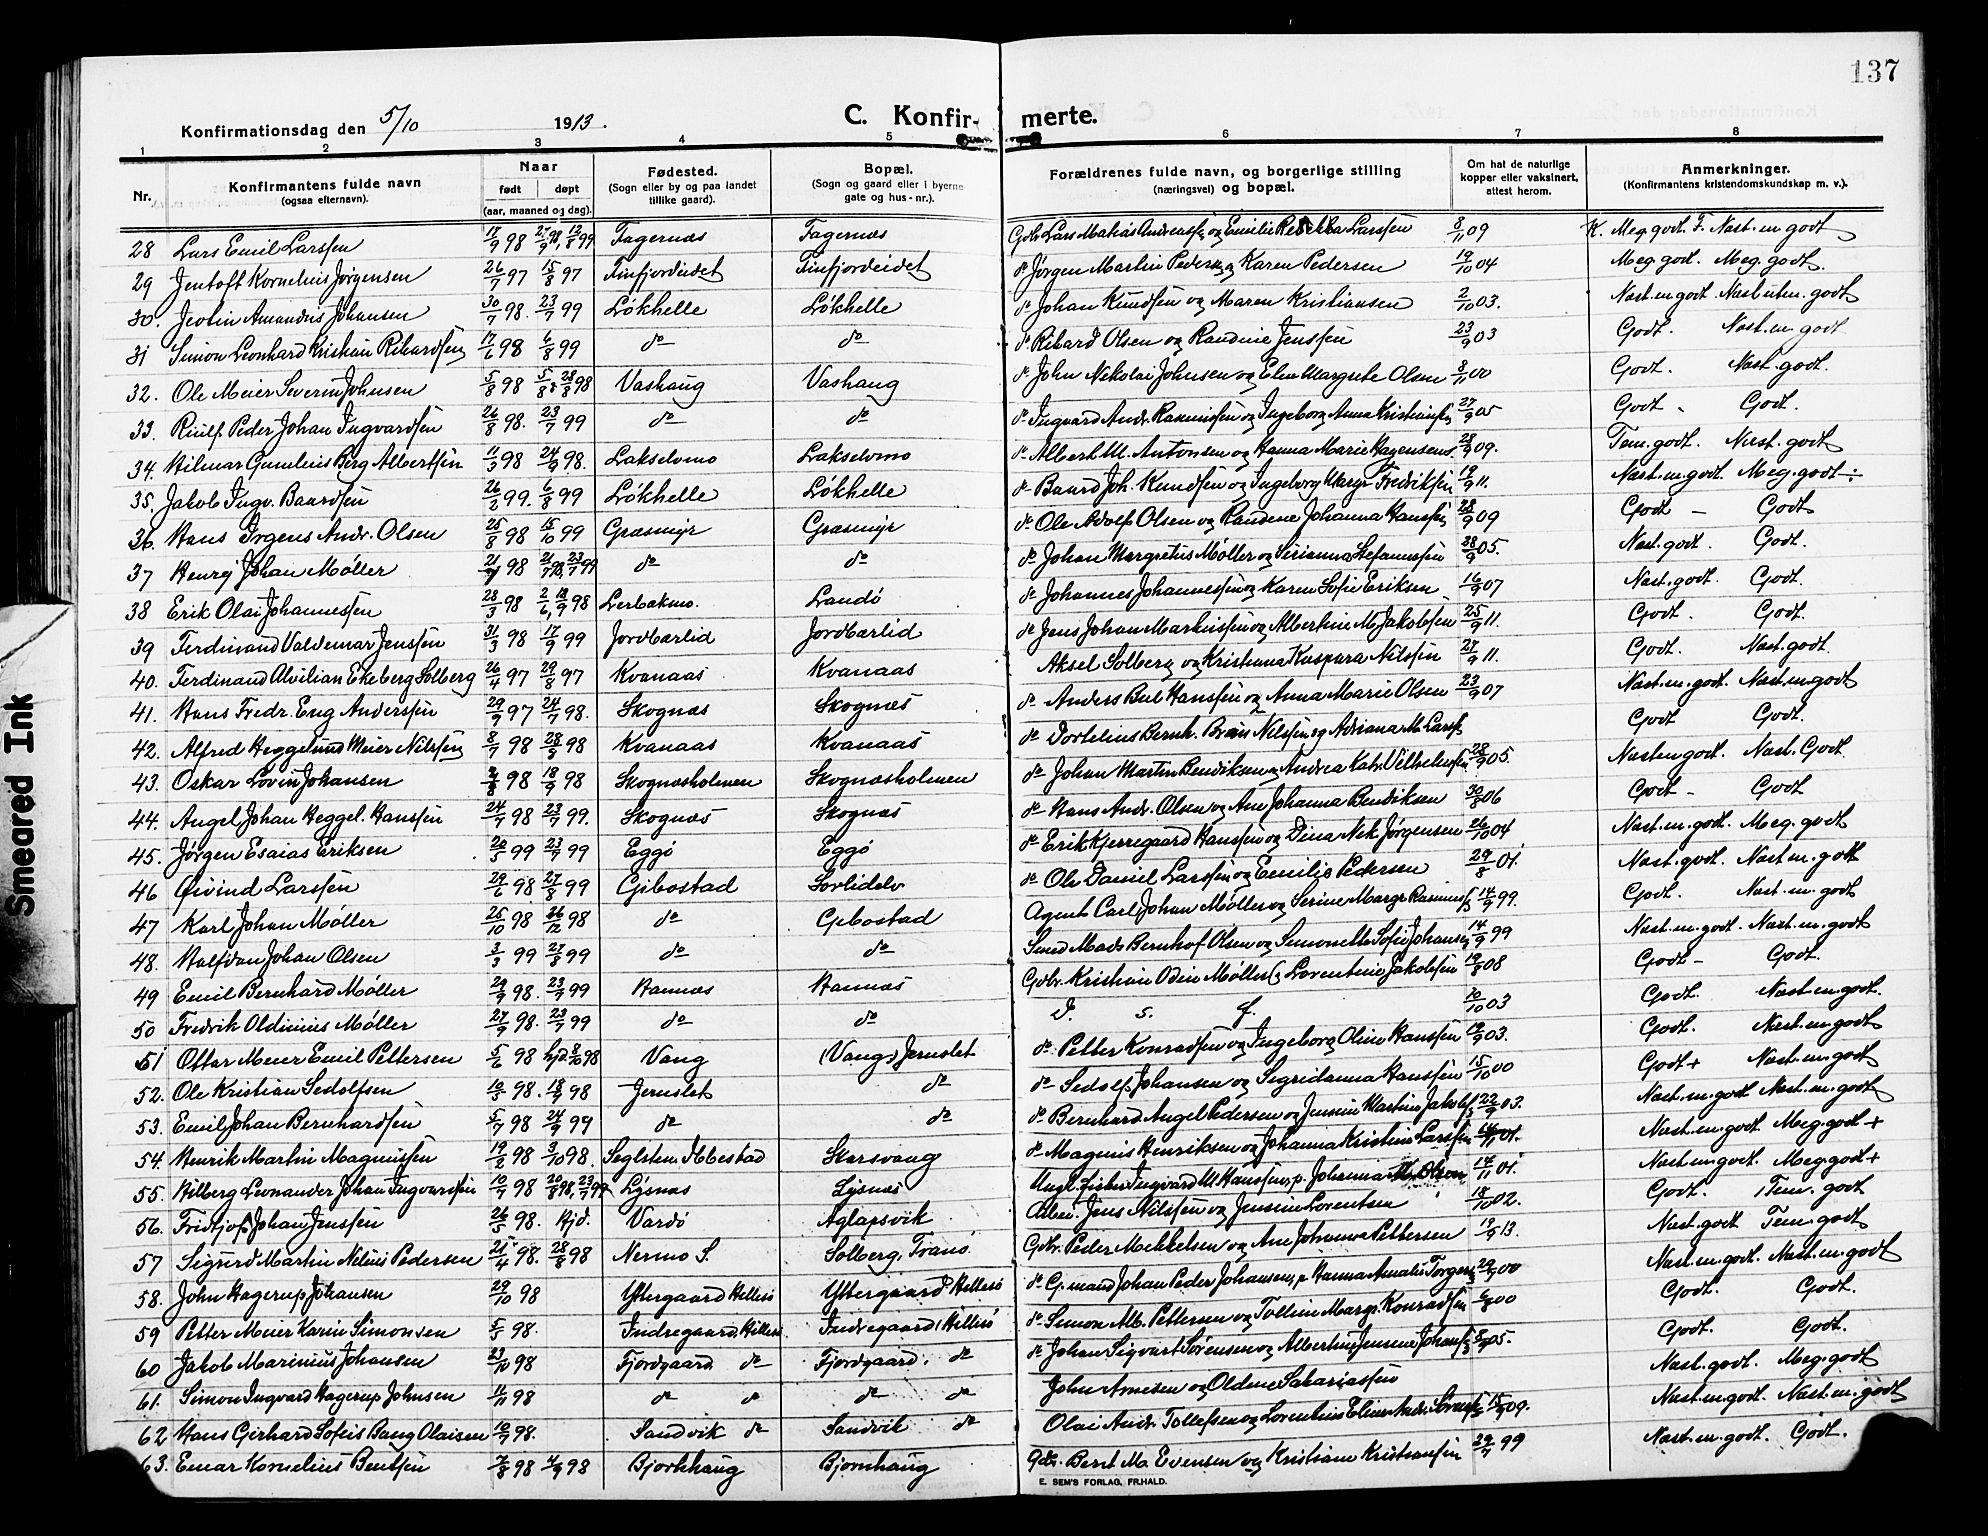 137
Konfirmationsdag den 5/10 1913. C. Konfir- merte.
1 2 3 4 5 6 7 8
Nr. Konfirmantens fulde navn (ogsaa efternavn). Naar født døpt (aar, maaned og dag). Fødested. (Sogn eller by og paa landet tillike gaard). Bopæl. (Sogn og gaard eller i byerne gate og hus-nr.). Forældrenes fulde navn, og borgerlige stilling (næringsvei) og bopæl. Om hat de naturlige kopper eller vaksinert, attest herom. Anmerkninger. (Konfirmantens kristendomskundskap m. v.).
28 Lars Emil Larssen 17/9 98 Fagernæs Fagernæs Gdbr. Lars Matias Andreassen og Emilie Larssen 8/11 09 K. Meg. godt. F. Næst. en godt
29 Jentoft Kornelius Jørgensen 26/7 97 15/8 97 Finfjordeidet Finfjordeidet do Jørgen Martin Pedersen og Karen Pedersen 19/10 04 Meg. godt. Meg. godt.
30. Jentin Amandus Johansen 30/7 98. 23/7 99 Løkhelle Løkhelle do Johan Knudsen og Maren Kristiansen 2/10 03. Næst. en godt
31 Simon Leonhard Kristian Rikardsen 17/6 98 6/8 99 do do do Rikard Olsen og Randine Jenssen 23/9 03 Godt. Næst. en godt
32. Ole Meier Severin Johnsen 5/8 98 28/8 98 Vashaug Vashaug do John Nikolai Johnsen og Elen Margrete Olsen 8/11 00 Godt. Næst. godt.
33. Peder Johan Ingvardsen 26/8 98. 23/7 99 do do do Ingvard Andr. Rasmussen og Ingeborg Anna Kristiansen 27/9 05 Godt - Godt.
34. Hilmar Berg Albertsen 11/3 98 24/9 98. Lakselvmo Lakselvmo do Albert M. Antonsen og Hanna Marie Hagensen 28/9 09. Tem. godt. Næst. godt
35. Jakob Ingv. Baardsen 26/2 99. 6/8 99 Løkhelle Løkhelle do Baard Joh. Knudsen og Ingeborg Margr. Fredriksen 19/9 11. Næst. en. godt. Meg. godt ÷
36. Hans Irgens Andr. Olsen 25/8 98 15/10 99 Græsmyr Græsmyr do Ole Adolf Olsen og Randine Johanna Hanssen 28/9 09 Godt - Godt
37 Henrij Johan Møller 98 do do do Johan Margretus Møller og Sirianna Stefanussen 28/9 05. Næst. godt. Godt.
38 Erik Olai Johannessen 28/3 98 98 Lerbakmo. Landø do Johannes Johannessen og Karen Sofie Eriksen 16/9 07 Næst. godt. Godt.
39 Ferdinand Valdemar Jenssen 31/3 98 17/9 99 Jordbærlid Jordbærlid do Jens Johan Markussen og Albertine M. Jakobsen 25/9 11. Godt. Godt.
40. Ferdinand Alvilian Ekeberg Solberg 26/4 97 29/8 97 Kvanaas Kvanaas Aksel Solberg og Kristiana Kaspara Nilssen 27/9 11. Godt. Næst. godt.
41. Hans Fredr. Eng Anderssen 29/9 97 24/7 98. Skognæs Skognæs do Anders Bul Hanssen og Anna Marie Olsen 23/9 07 Næst. en. godt. Næst. en. godt
42. Alfred Heggelund Meier Nilssen 8/7 98 28/8 98 Kvanaas Kvanaas do Dortelius Bernh. Nilssen og Adriana M. Larss. Godt Godt.
43. Oskar Lovin Johansen 98 18/9 98 Skognæsholmen Skognæsholmen do Johan Martin Bendiksen og Andrea Katr. Vilhelmsen 28/9 05. Næst en godt. Næst. Godt.
44. Angel Johan Heggel. Hanssen 24/7 98 23/7 99. Skognæs Skognæs do Hans Andr. Olsen og Ane Johanna Bendiksen 30/8 06 Godt - Godt
45. Jørgen Esaias Eriksen 20/5 99 23/7 99 Eggø Eggø do Erik Kjerregaard Hanssen og Dina Nik. Jørgensen 26/10 04 Næst. en. godt. Meg. godt
46 Øivind Larssen 29/6 98. 27/8 99 Gibostad Sørlidelv do Ole Daniel Larssen og Emilie Pedersen 29/8 01. Næst. godt. Næst en. godt
47 Karl Johan Møller 25/10 98 26/12 98 do Gibostad Agent Carl Johan Møller og Serine Margr. Rasmuss. 14/9 99. Godt. Næst. en. godt
48. Halfdan Johan Olsen 3/3 99 27/8 99 do do Smed Mads Bernhof Olsen og Simonette Sofie Johansen 14/9 99 Næst. en. godt. Næst. en. godt
49 Emil Bernhard Møller 29/9 98. 23/7 99 Hannæs Hannæs Gdbr. Kristian Odin Møller og Lorentine Jakobsen 19/8 08 Godt - Godt.
50 Fredrik Oldinius Møller 27/9 98. 23/7 99 do do D. s. f. 10/10 03 Godt. Næst. en. godt.
51 Ottar Meier Emil Pettersen 5/6 98 hjd. 8/10 98 Vang (Vang) Jernslet do Petter Konradsen og Ingeborg Oline Hanssen 19/9 03. Godt. Næst. en. godt
52. Ole Kristian Sedolfsen 10/3 98. 18/9 98 Jernslet do do Sedolf Johansen og Sigridanna Hanssen 15/10 00 Godt + Næst. en. godt
53. Emil Johan Bernhardsen 5/7 98 24/9 99 do do do Bernhard Angel Pedersen og Jensine Martine Jakobs. 22/9 03. Næst. en. godt Næst. en. godt
54. Henrik Martin Magnussen 19/2 98 3/10 98. Seglsten Ibbestad Skarsvaag do Magnus Henriksen og Johanna Kristine Larssen Næst. en. godt Meg. godt +
55. Hilberg Leonander Johan Ingvardsen 10/7 98 Lysnæs Lysnæs Ungk. fisker Ingvard M. Hanssen, p. Johanna M. Olsen 14/11 01. Næst. en godt. Meg. godt +
56. Fridtjof Johan Jenssen 26/5 98. Hjd. Vardø Aglapsvik Arbei. Jens Nilssen og Jensine Lorentsen 18/10 02. Godt. Tem. godt
57 Sigurd Martin Nelius Pedersen 21/4 98. 28/8 98 Nermo S. Solberg, Tranø Gdbr. Peder Mekkelsen og Ane Johanna Pettersen 19/9 13. Næst. godt Tem. godt
58. John Hagerup Johansen 29/10 98 Yttergaard Hellesø Yttergaard Hellesø do G. mand Johan Peder Johansen, p. Hanna Amalie Torgers. 00 Næst. en. godt. Næst. en. godt
59 Petter Meier Karin Simonsen 5/5 98. Indregaard, Hillesø Indregaard, Hillesø do Simon Alb. Pettersen og Tolline Margr. Konradsen 00 Godt. Godt.
60 Jakob Marinius Johansen 23/10 98 Fjordgaard do Fjordgaard. do do Johan Sigvart Sørensen og Albertine Jensine Johans. 05. Godt. Godt.
61. Simon Ingvard Hagerup Johnsen 11/11 98 do do do do John Arnesen og Oldine Sakariassen Næst. godt. Meg. godt
62 Hans Gerhard Sofus Bang Olaisen 10/7 98. Sandvik do Sandvik do Olai Andr. Tollefsen og Lorentine Eline Andr. 15/9 09. Næst. en. godt. Næst. en. godt
63. Einar Kornelius Bentsen 7/8 98 4/9 98 Bjorkhaug Bjornhaug Gdbr. Bernt Ma. Evensen og Kristiane Kristiansen 29/7 99 Næst. en. godt. Godt.
E. SEM'S FORLAG, FR.HALD.
Smeared Ink